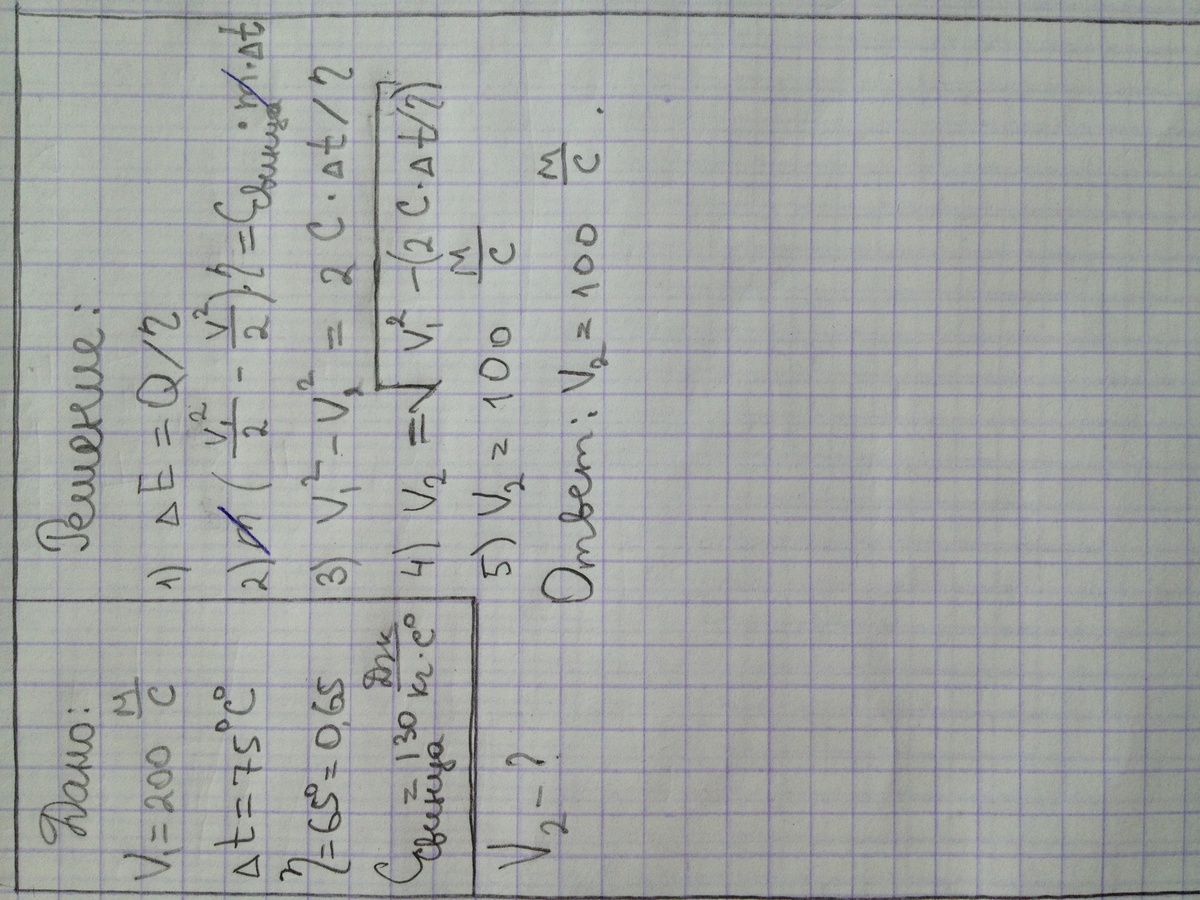 Дано:
V₁ = 200 м/с
Δt = 75°C°
η = 65° = 0,65
Cсвинца = 130 Дж/кг·C°
V₂ – ?
Решение:
1) ΔE = Q/η
2) m(V₁²/2 - V²/2)·η = Cсвинца·m·Δt
3) V₁² - V₂² = 2C·Δt/η
4) V₂ = √(V₁² - (2C·Δt/η))
5) V₂ = 100 м/с
Ответ: V₂ = 100 м/с.